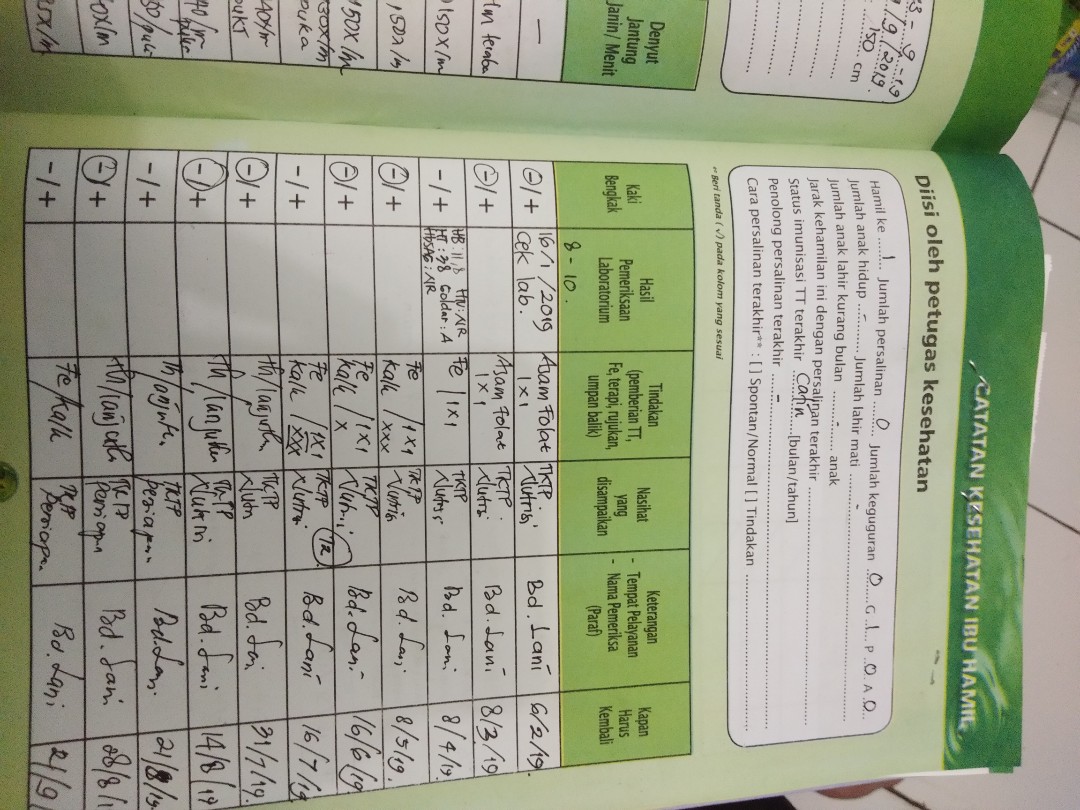 CATATAN KESEHATAN IBU HAMIL
Diisi oleh petugas kesehatan
Hamil ke ....... 1 Jumlah persalinan ..... 0 ..... Jumlah keguguran ..0.... G .1.. P .0. A .0..
Jumlah anak hidup ....-...... Jumlah lahir mati ......-......
Jumlah anak lahir kurang bulan ....-.... anak
Jarak kehamilan ini dengan persalinan terakhir ......
Status imunisasi TT terakhir Catin [bulan/tahun]
Penolong persalinan terakhir ....-....
Cara persalinan terakhir** : [ ] Spontan/Normal [ ] Tindakan ......
** Beri tanda (√) pada kolom yang sesuai
9/9/2019
150 cm
Denyut Jantung Janin/ Menit
Kaki Bengkak
Hasil Pemeriksaan Laboratorium
Tindakan (pemberian TT, Fe, terapi, rujukan, umpan balik)
Nasihat yang disampaikan
Keterangan - Tempat Pelayanan - Nama Pemeriksa (Paraf)
Kapan Harus Kembali
8 - 10.
— -/+ 16/1/2019 cek lab. Asam Folat 1x1 TKTP. Nutrisi Bd. Lani 6/2/19.
-/+ Asam Folat 1x1 TKTP. Nutrisi Bd. Lani 8/3/19
150x/m -/+ HB: 11,8 HIV: NR HT: 38 Goldar: A HbsAg: NR Fe / 1x1 TKTP Nutrisi Bd. Lani 8/4/19.
150x/m -/+ Fe / 1x1 Kalk / xxx TKTP Nutrisi Bd. Lani 8/5/19.
150x/m -/+ Fe / 1x1 Kalk / x TKTP Nutrisi Bd. Lani 16/6/19
130x/m -/+ Fe / 1x1 Kalk / xxx TKTP Nutrisi Bd Lani 16/7/19
140x/m -/+ Th/lanjutkan TKTP Nutrisi Bd. Lani 31/7/19.
-/+ Th/lanjutkan TKTP Nutrisi Bd. Lani 14/8/19
-/+ Th/lanjutkan TKTP persiapan Bd Lani 21/8/19
-/+ Th/lanjutkan TKTP persiapan Bd. Lani 28/8/1
-/+ Fe/Kalk TKTP persiapan Bd. Lani 21/9/